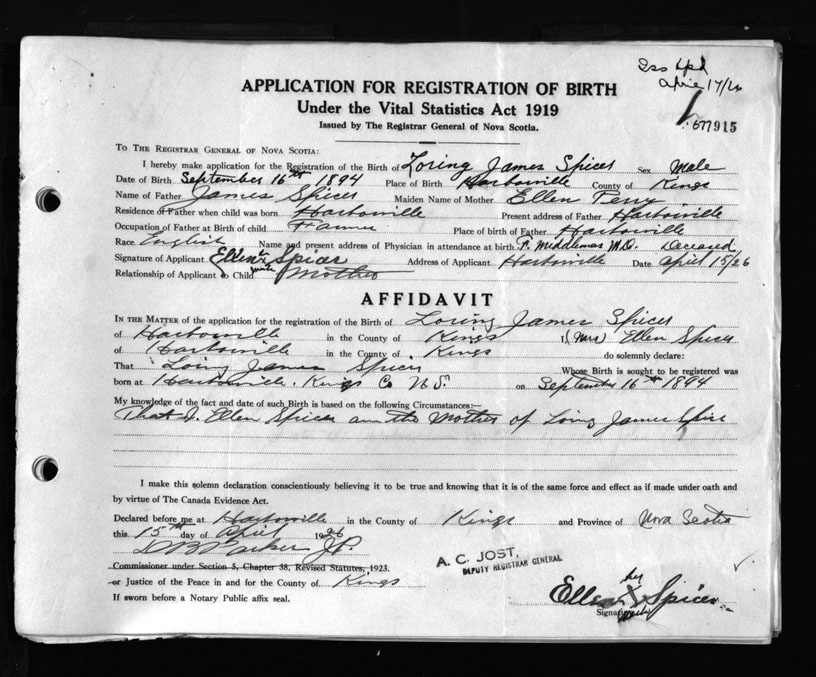 April 17/26
APPLICATION FOR REGISTRATION OF BIRTH
Under the Vital Statistics Act 1919
Issued by The Registrar General of Nova Scotia.
677915
TO THE REGISTRAR GENERAL OF NOVA SCOTIA:
I hereby make application for the Registration of the Birth of Loring James Spicer Sex Male
Date of Birth September 16th 1894 Place of Birth Harborville County of Kings
Name of Father James Spicer Maiden Name of Mother Ellen Perry
Residence of Father when child was born Harborville Present address of Father Harborville
Occupation of Father at Birth of child Farmer Place of birth of Father Harborville
Race English Name and present address of Physician in attendance at birth P. Middlemas M.D. Deceased
Signature of Applicant Ellen her Spicer Address of Applicant Harborville Date April 15/26
mark
Relationship of Applicant to Child Mother
AFFIDAVIT
IN THE MATTER of the application for the registration of the Birth of Loring James Spicer
of Harborville in the County of Kings I (Mrs) Ellen Spicer
of Harborville in the County of Kings do solemnly declare:
That Loring James Spicer Whose Birth is sought to be registered was
born at Harborville, Kings Co N.S. on September 16th 1894
My knowledge of the fact and date of such Birth is based on the following Circumstances:—
That I, Ellen Spicer am the Mother of Loring James Spicer
I make this solemn declaration conscientiously believing it to be true and knowing that it is of the same force and effect as if made under oath and
by virtue of The Canada Evidence Act.
Declared before me at Harborville in the County of Kings and Province of Nova Scotia
this 15th day of April 1926
Parker J.P.
Commissioner under Section 5, Chapter 38, Revised Statutes, 1923.
or Justice of the Peace in and for the County of Kings
If sworn before a Notary Public affix seal.
A. C. JOST.
DEPUTY REGISTRAR GENERAL
her
Ellen X Spicer
mark
Signature